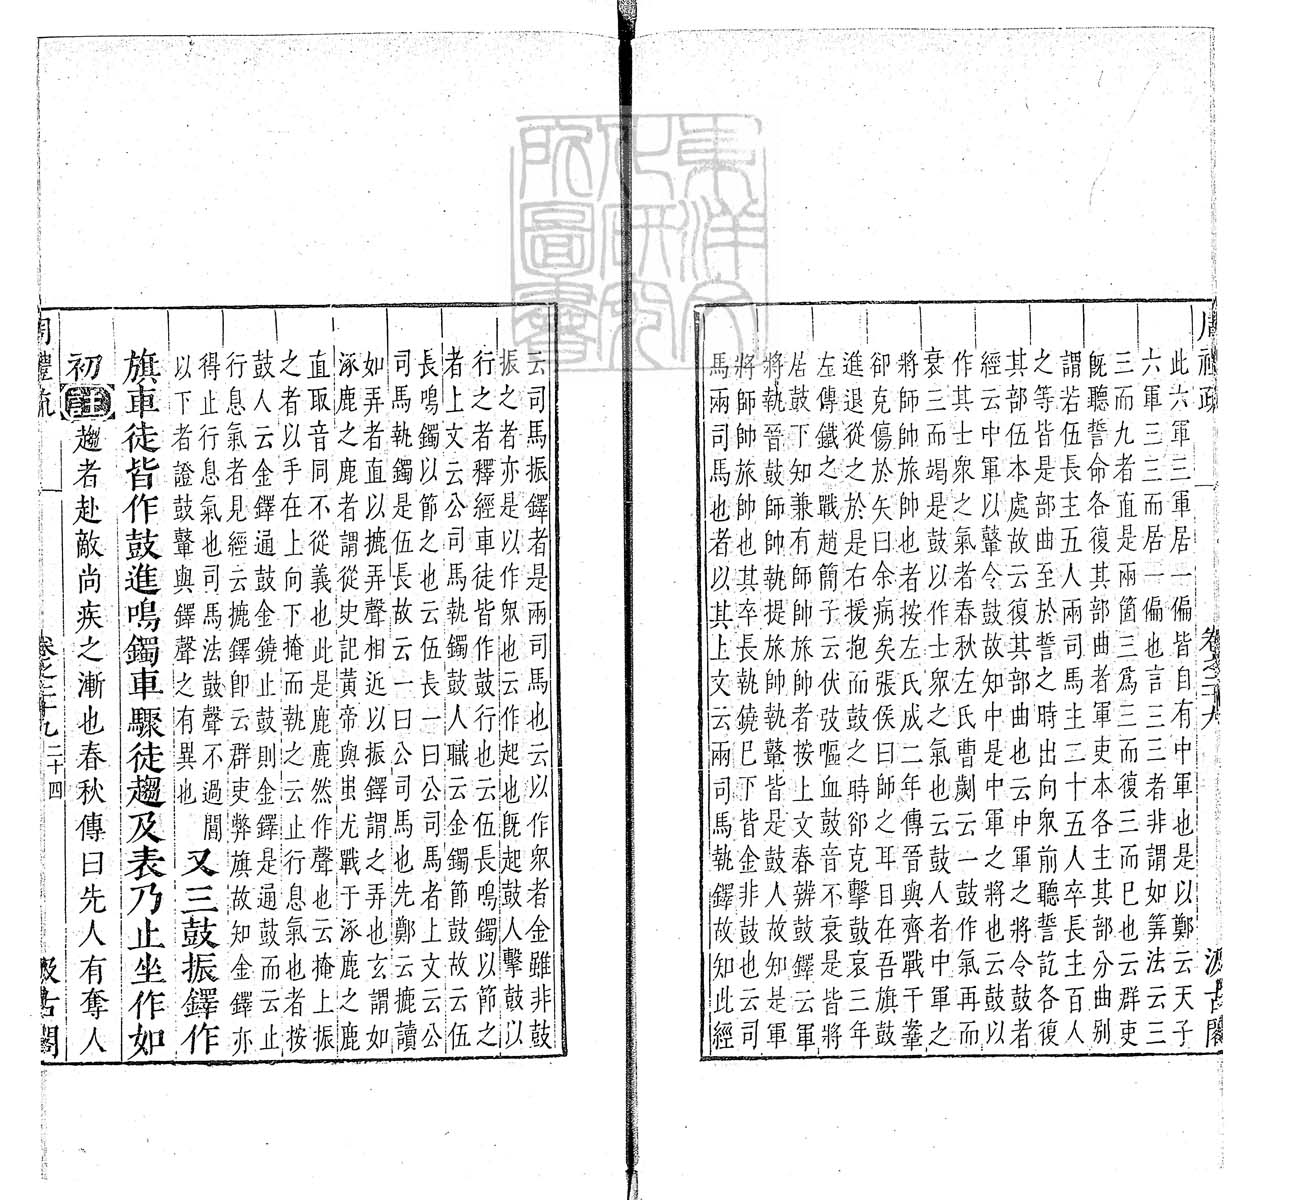 此六軍三軍居一偏皆自有中軍也是以鄭云天子
六軍三三而居一偏也言三三者非謂如筭法云三
三而九者直是兩箇三爲三而復三而已也云群吏
旣聽誓命各復其部曲者軍吏本各主其部分曲别
謂若伍長主五人兩司馬主二十五人卒長主百人
之等皆是部曲至於誓之時出向衆前聽誓訖各復
其部伍本處故云復其部曲也云中軍之將令鼓者
經云中軍以鼙令鼓故知中是中軍之將也云鼓以
作其士衆之氣者春秋左氏曹劌云一鼓作氣再而
衰三而竭是鼓以作士衆之氣也云鼓人者中軍之
將師帥旅帥也者按左氏成二年傳晉與齊戰于鞌
卻克傷於矢曰余病矣張侯曰師之耳目在吾旗鼓
進退從之於是右援抱而鼓之時卻克擊鼓哀三年
左傳鐵之戰趙簡子云伏弢嘔血鼓音不衰是皆將
居鼓下知兼有師帥旅帥者按上文春辨鼓鐸云軍
將執晉鼓師帥執提旅帥執鼙皆是鼓人故知是軍
將師帥旅帥也其卒長執鐃已下皆金非鼓也云司
馬兩司馬也者以其上文云兩司馬執鐸故知此經
云司馬振鐸者是兩司馬也云以作衆者金雖非鼓
振之者亦是以作衆也云作起也旣起鼓人擊鼓以
行之者釋經車徒皆作鼓行也云伍長鳴鐲以節之
者上文云公司馬執鐲鼓人職云金鐲節鼓故云伍
長鳴鐲以節之也云伍長一曰公司馬者上文云公
司馬執鐲是伍長故云一曰公司馬也先鄭云摝讀
如弄者直以摝弄聲相近以振鐸謂之弄也玄謂如
涿鹿之鹿者謂從史記黃帝與蚩尤戰于涿鹿之鹿
直取音同不從義也此是鹿鹿然作聲也云掩上振
之者以手在上向下掩而執之云止行息氣也者按
鼓人云金鐸通鼓金鐃止鼓則金鐸是通鼓而云止
行息氣者見經云摝鐸卽云群吏弊旗故知金鐸亦
得止行息氣也司馬法鼓聲不過閶
以下者證鼓聲與鐸聲之有異也
又三鼓振鐸作
旗車徒皆作鼓進鳴鐲車驟徒趨及表乃止坐作如
初
註
趨者赴敵尚疾之漸也春秋傳曰先人有奪人
卷之二十九
二十四